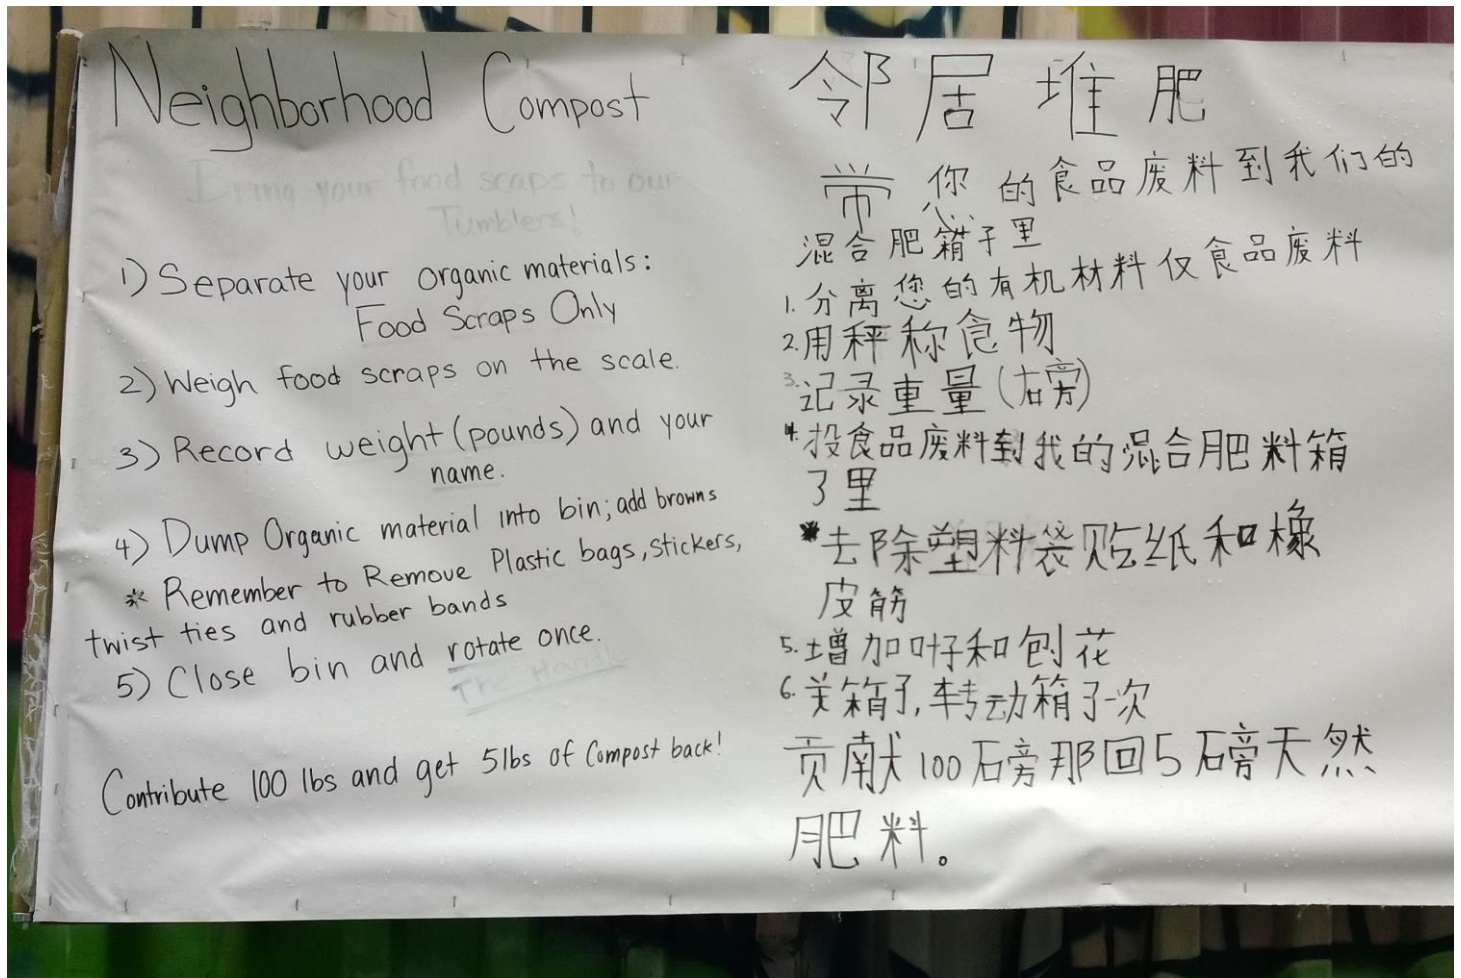 Neighborhood Compost
Bring your food scaps to our
Tumblers!
1) Separate your organic materials:
Food Scraps Only
2) Weigh food scraps on the scale.
3) Record weight (pounds) and your
name.
4) Dump Organic material into bin; add browns
* Remember to Remove Plastic bags, stickers,
twist ties and rubber bands
5) Close bin and rotate once.
The Handle
Contribute 100 lbs and get 5lbs of Compost back!
邻居堆肥
带您的食品废料到我们的
混合肥箱子里
1. 分离您的有机材料仅食品废料
2. 用秤称食物
3. 记录重量(磅)
4. 投食品废料到我的混合肥料箱
子里
*去除塑料袋贴纸和橡
皮筋
5. 增加叶子和刨花
6. 关箱子,转动箱子一次
贡献100磅那回5磅天然
肥料。